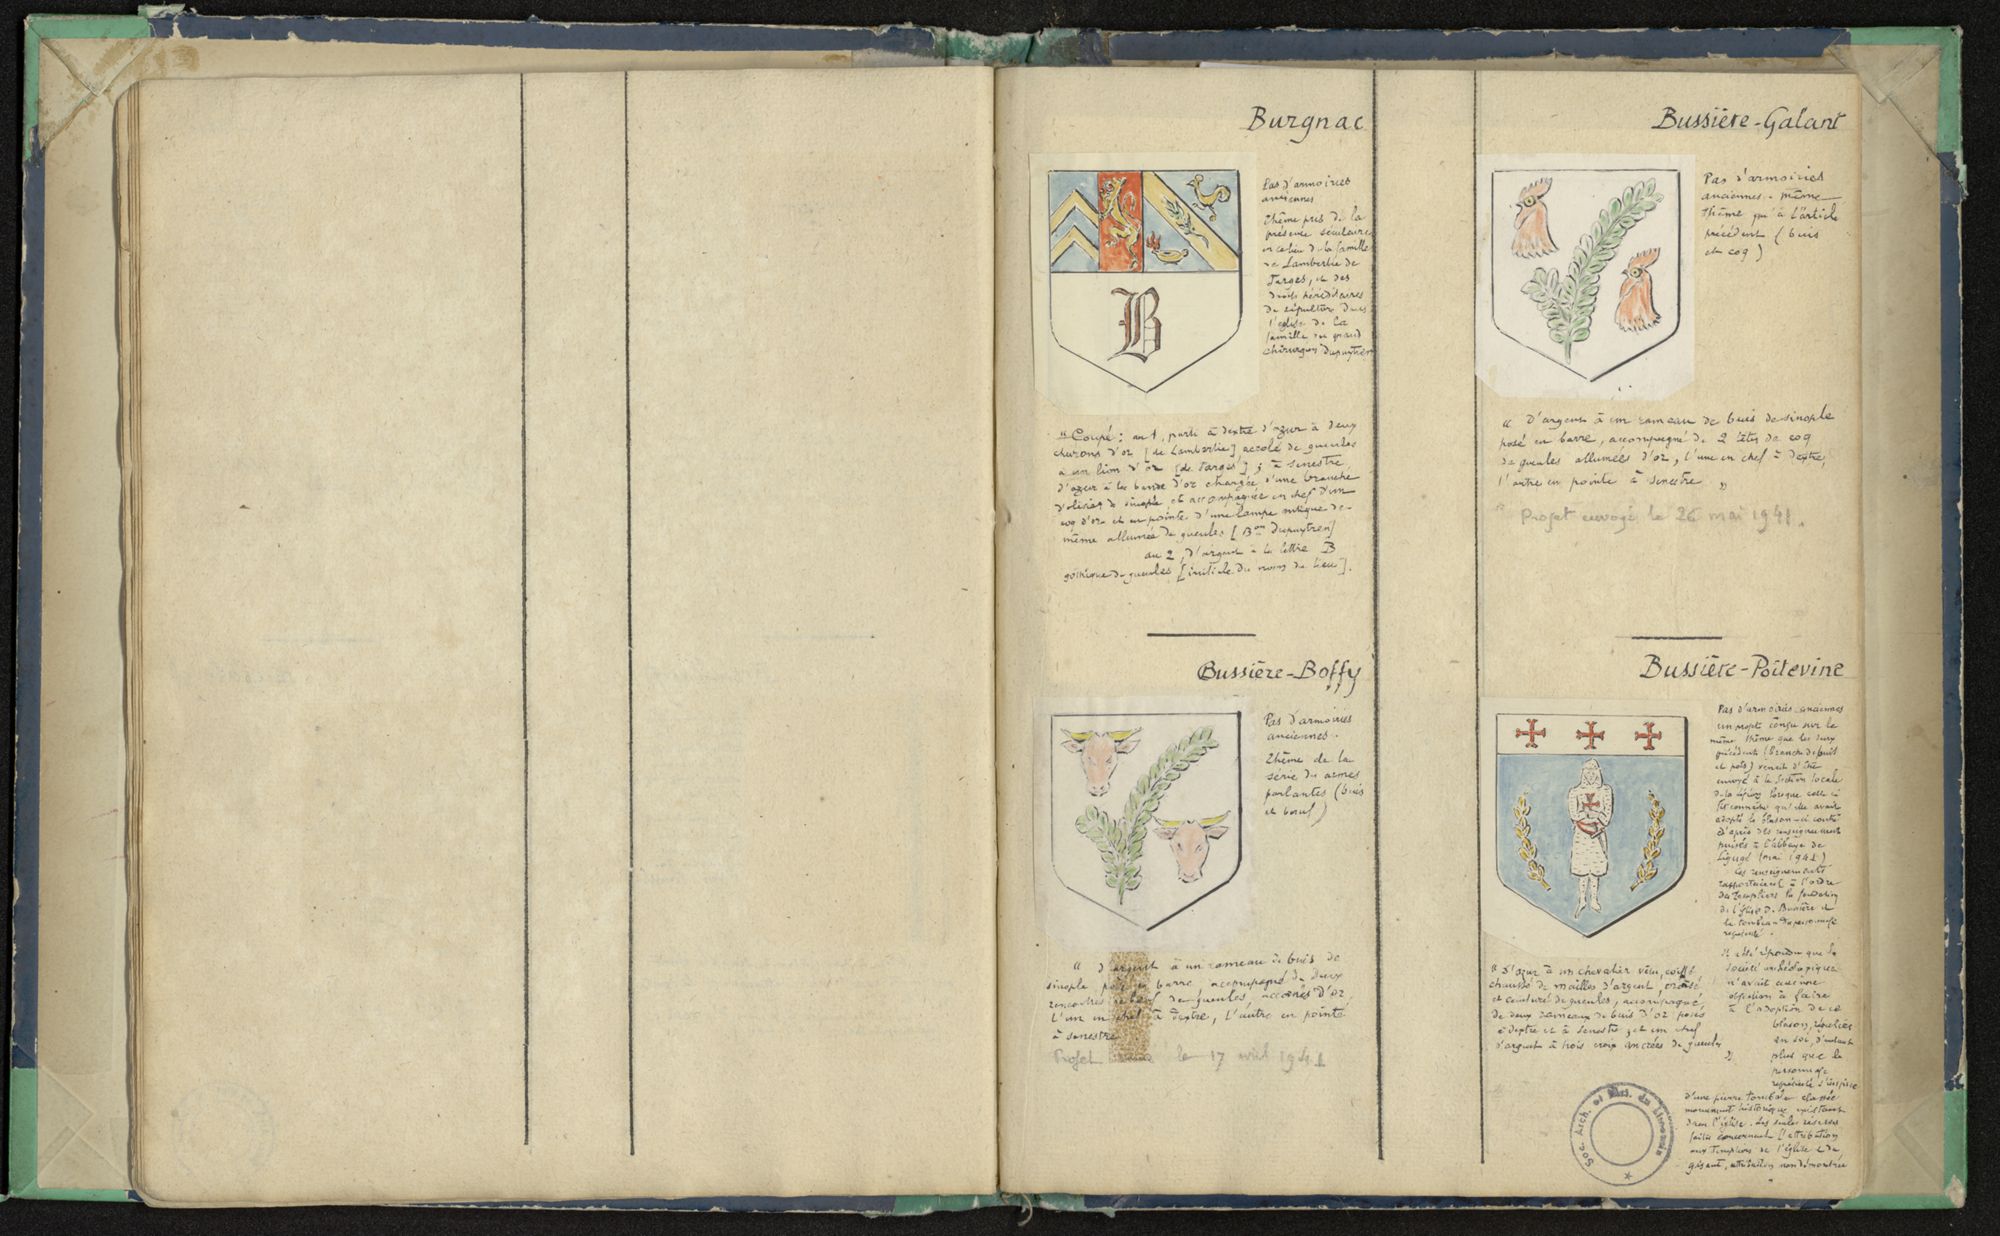 Burgnac
Pas d'armoiries
anciennes
Thème pris de la
présence séculaire
en ce lieu de la famille
de Lambertie de
Farges, et des
droits héréditaires
de sépulture dans
l'église de la
famille du grand
chirurgien Dupuytren
B
" Coupé : au 1, parti à dextre d'azur à deux
chevrons d'or [de Lambertie] accolé de gueules
à un lion d'or [de Farges] ; à senestre
d'azur à la bande d'or chargée d'une branche
d'olivier de sinople et accompagnée en chef d'un
coq d'or et en pointe d'une lampe antique de
même allumée de gueules [Bon Dupuytren]
au 2, d'argent à la lettre B
gothique de gueules [initiale du nom de lieu].
Bussière-Boffy
Pas d'armoiries
anciennes.
Thème de la
série des armes
parlantes (buis
et bœuf)
" d'argent à un rameau de buis de
sinople posé en barre, accompagné de deux
rencontres de bœuf de gueules, accornés d'or
l'un en chef à dextre, l'autre en pointe
à senestre
Projet le 17 avril 1941
Bussière-Galant
Pas d'armoiries
anciennes. même
thème qu'à l'article
précédent (buis
et coq)
" D'argent à un rameau de buis de sinople
posé en barre, accompagné de 2 têtes de coq
de gueules allumées d'or, l'une en chef à dextre,
l'autre en pointe à senestre "
Projet envoyé le 26 mai 1941.
Bussière-Poitevine
Pas d'armoiries anciennes
un projet conçu sur le
même thème que les deux
précédents (branche de buis
et pots) venait d'être
envoyé à la section locale
de la Légion lorsque celle ci
fit connaître qu'elle avait
adopté le blason ci contre
d'après des renseignements
puisés à l'abbaye de
Ligugé (mai 1941)
Ces renseignements
rapportaient à l'ordre
des Templiers la fondation
de l'église de Bussière et
le tombeau du personnage
représenté.
Il a été répondu que la
société archéologique
n'avait aucune
objection à faire
à l'adoption de ce
blason, régulier
en soi, d'autant
plus que le
personnage
représenté s'inspire
d'une pierre tombale classée
monument historique existant
dans l'église. Les seules réserves
faites concernent l'attribution
aux Templiers de l'église et du
gisant, attribution non démontrée
" D'azur à un chevalier vêtu, coiffé
chaussé de mailles d'argent, croisé
et ceinturé de gueules, accompagné
de deux rameaux de buis d'or posés
à dextre et à senestre et un chef
d'argent à trois croix ancrées de gueules
"
Soc. Arch. et Hist. du Limousin